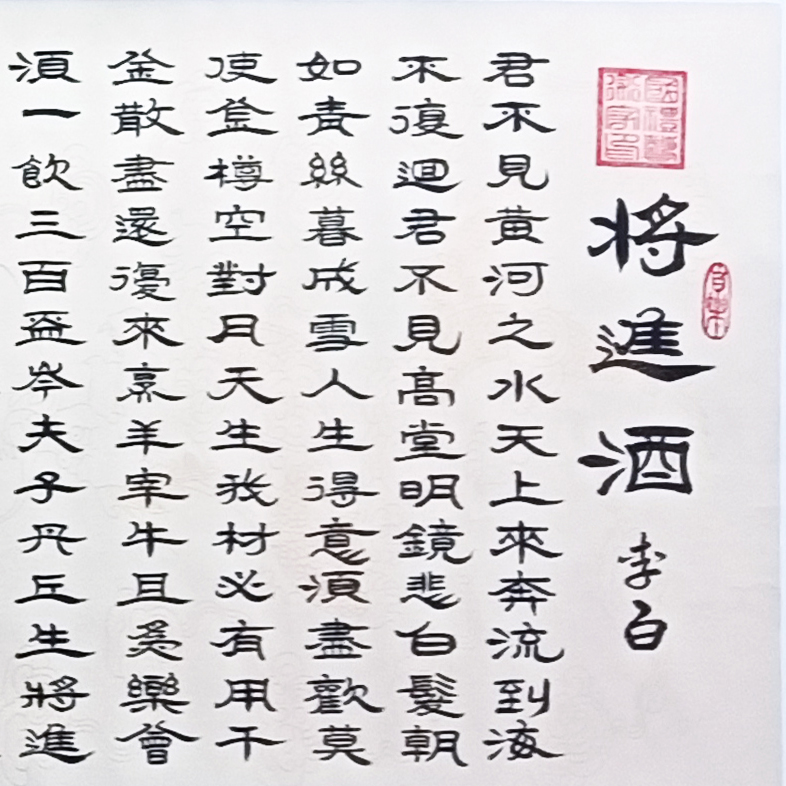 将進酒
李白
君不見黃河之水天上來奔流到海
不復迴君不見髙堂明鏡悲白髮朝
如青絲暮成雪人生得意湏盡歡莫
使金樽空對月天生我材必有用千
金散盡還復來烹羊宰牛且爲樂會
湏一飲三百盃岑夫子丹丘生將進